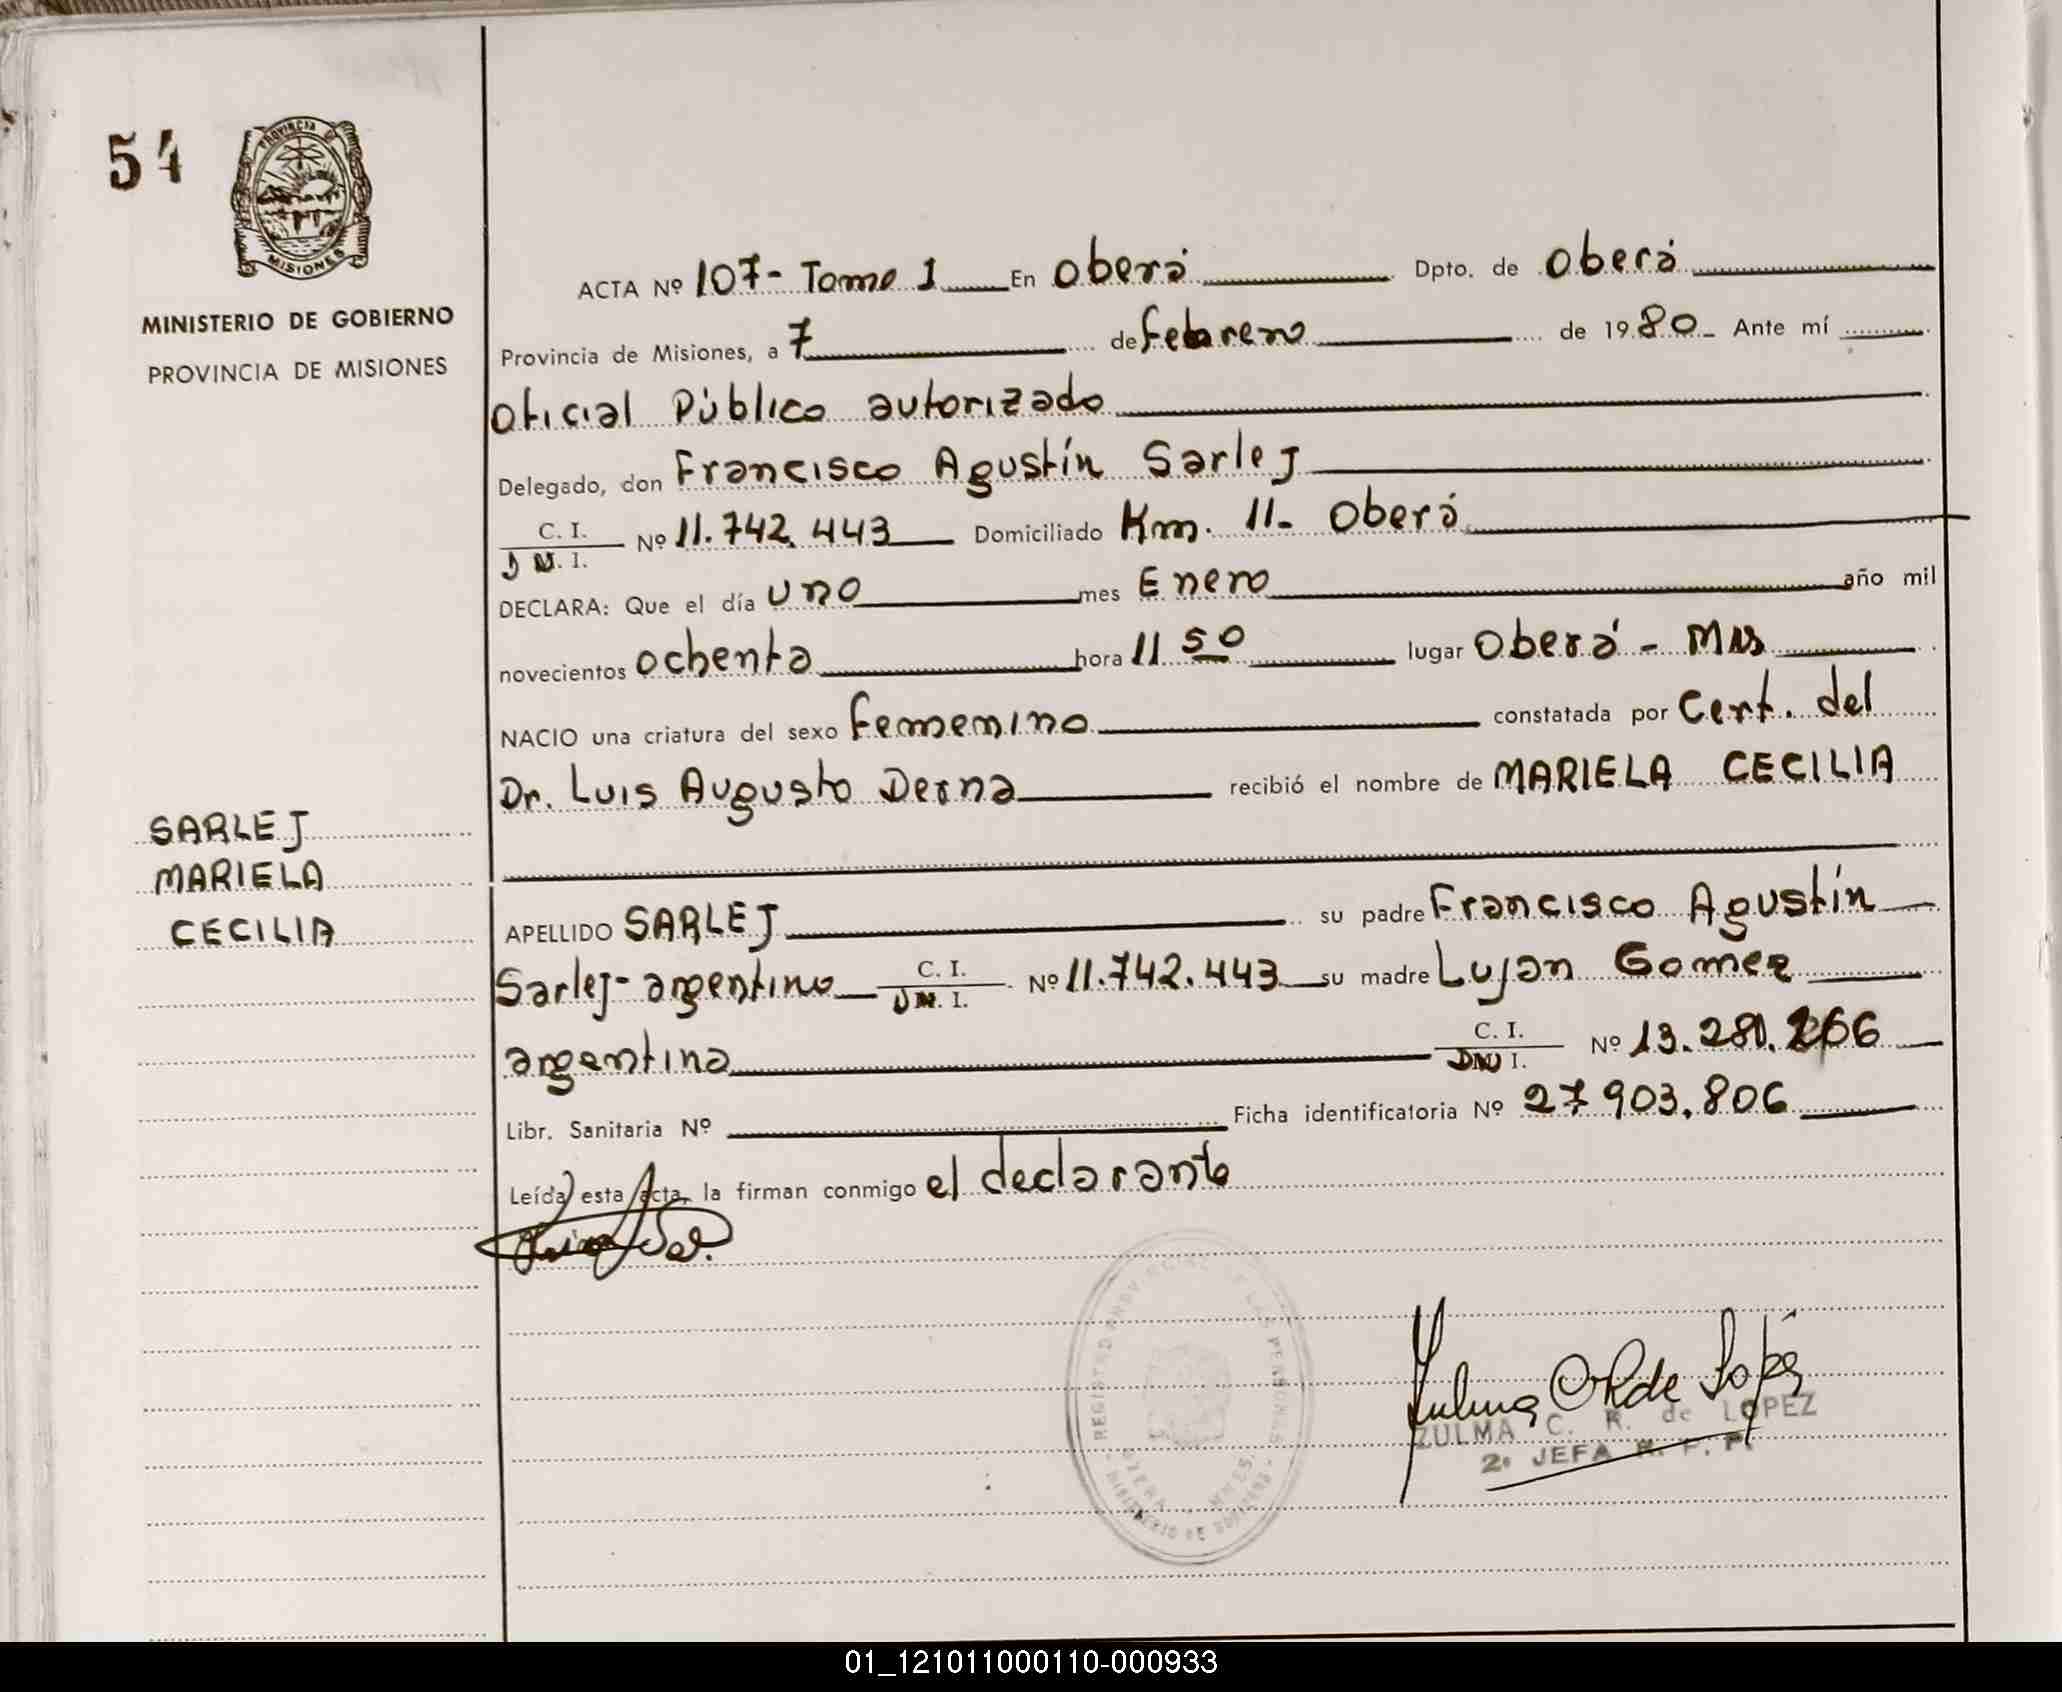 54
PROVINCIA DE
MISIONES
MINISTERIO DE GOBIERNO
PROVINCIA DE MISIONES
SARLEJ
MARIELA
CECILIA
ACTA Nº 107- Tomo 1 En Oberá Dpto. de Oberá
Provincia de Misiones, a 7 de febrero de 1980 Ante mí
Oficial Público autorizado
Delegado, don Francisco Agustín Sarlej
C. I.
D N. I. Nº 11.742.443 Domiciliado Km. 11- Oberá
DECLARA: Que el día uno mes Enero año mil
novecientos ochenta hora 11 50 lugar Oberá - Mns
NACIO una criatura del sexo femenino constatada por Cert. del
Dr. Luis Augusto Derna recibió el nombre de MARIELA CECILIA
APELLIDO SARLEJ su padre Francisco Agustín
Sarlej- argentino C. I. D N. I. Nº 11.742.443 su madre Lujan Gomez
argentina C. I. DN I. Nº 13.281.
Libr. Sanitaria Nº Ficha identificatoria Nº 27 903.806
Leída esta acta, la firman conmigo el declarante
REGISTRO PROVINCIAL DE LAS PERSONAS
OBERA MNES.
MINISTERIO DE GOBIERNO
Zulma C R de López
ZULMA C. R. de LOPEZ
2ª JEFA R. P. P.
01_121011000110-000933